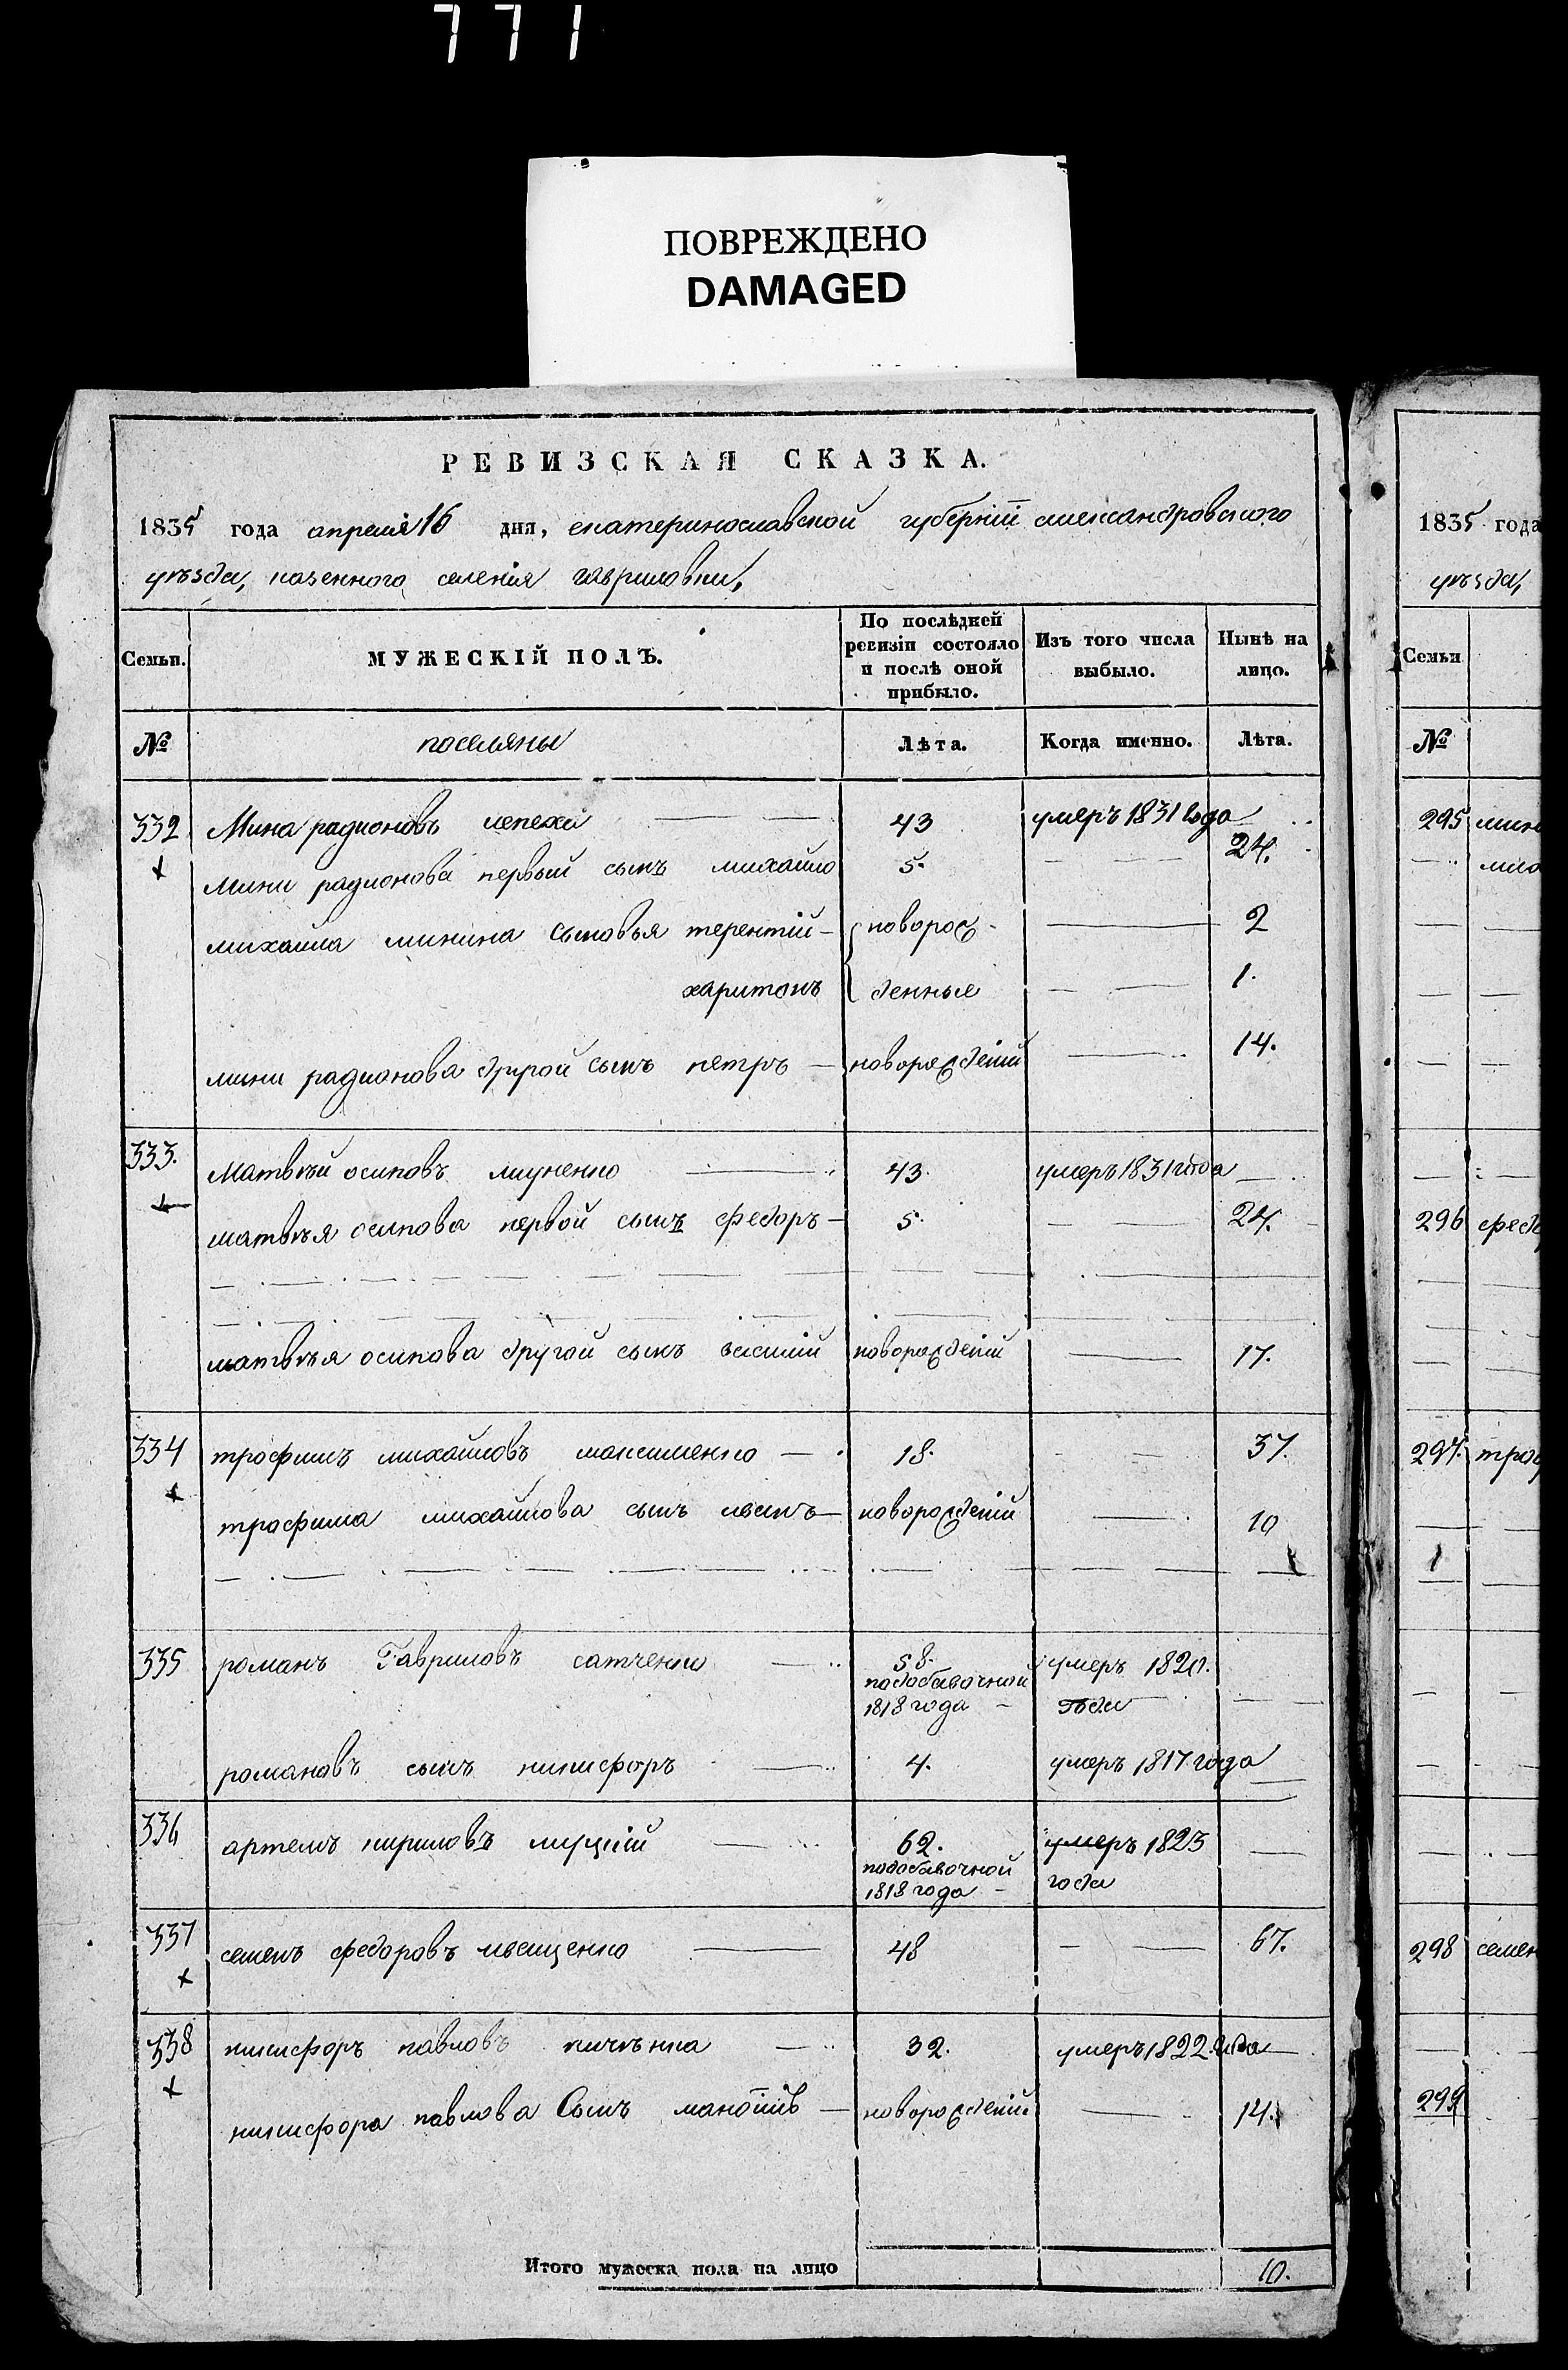 771
ПОВРЕЖДЕНО
DAMAGED
РЕВИЗСКАЯ СКАЗКА.
1835 года апреля 16 дня, екатеринославской губерніи александровского
уѣзда, казенного селенія гавриловки,
Семьи. МУЖЕСКІЙ ПОЛЪ. По послѣдней ревизіи состояло и послѣ оной прибыло. Изъ того числа выбыло. Нынѣ на лицо.
№ поселяны Лѣта. Когда именно. Лѣта.
332 Мина радионовъ лепеха 43 умеръ 1831 года
мини радионова первый сынъ михайло 5. 24.
михаила минина сыновья терентій новорож 2
харитонъ денные 1.
мини радионова другой сынъ петръ новорожденій 14.
333. Матвѣй осиповъ 43. умеръ 1831 года
матвѣя осипова первой сынъ федоръ 5. 24.
матвѣя осипова другой сынъ василій новорожденій 17.
334 трофимъ михайловъ максименко 18. 37.
трофима михайлова сынъ новорожденій 10
335 романъ Гавриловъ сатченко 58. умеръ 1820.
подобавочной
1818 года года
романовъ сынъ никифоръ 4. умеръ 1817 года
336 артемъ кириловъ луцкій 62. умеръ 1823
подобавочной
1818 года года
337 семенъ федоровъ иващенко 48 67.
338 никифоръ павловъ 32. умеръ 1822 года
никифора павлова Сынъ новорожденій 14.
Итого мужеска пола на лицо 10.
1835 года
уѣзда,
Семьи
№
295 мин
миха
296 федо
297. троф
298 семен
299